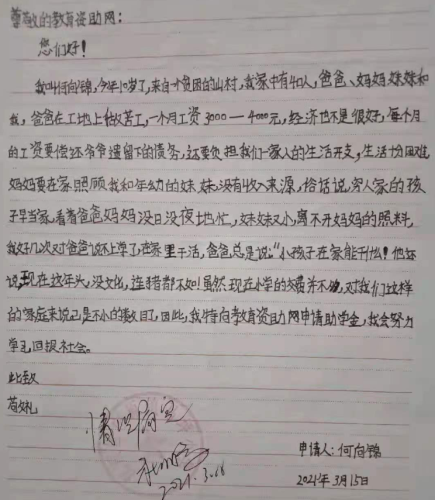 尊敬的教育资助网：
您们好！
我叫何向锦，今年10岁了，来自一个贫困的山村，我家中有4口人，爸爸、妈妈妹妹和
我，爸爸在工地上做苦工，一个月工资3000—4000元，经济也不是很好，每个月
的工资要偿还爷爷遗留下的债务，还要负担我们一家人的生活开支，生活十分困难
妈妈要在家照顾我和年幼的妹妹没有收入来源，俗话说，穷人家的孩
子早当家，看着爸爸妈妈没日没夜地忙，妹妹又小，离不开妈妈的照料，
我好几次对爸爸说不上学了，在家里干活，爸爸总是说："小孩子在家能干什么！他还
说现在这年头，没文化，连猪都不如！虽然现在小学的费并不高，对我们这样
的家庭来说已是不小的数目了，因此，我特向教育资助网申请助学金，我会努力
学习回报社会。
此致
敬礼
情况属实
2021.3.16
申请人：何向锦
2021年3月15日